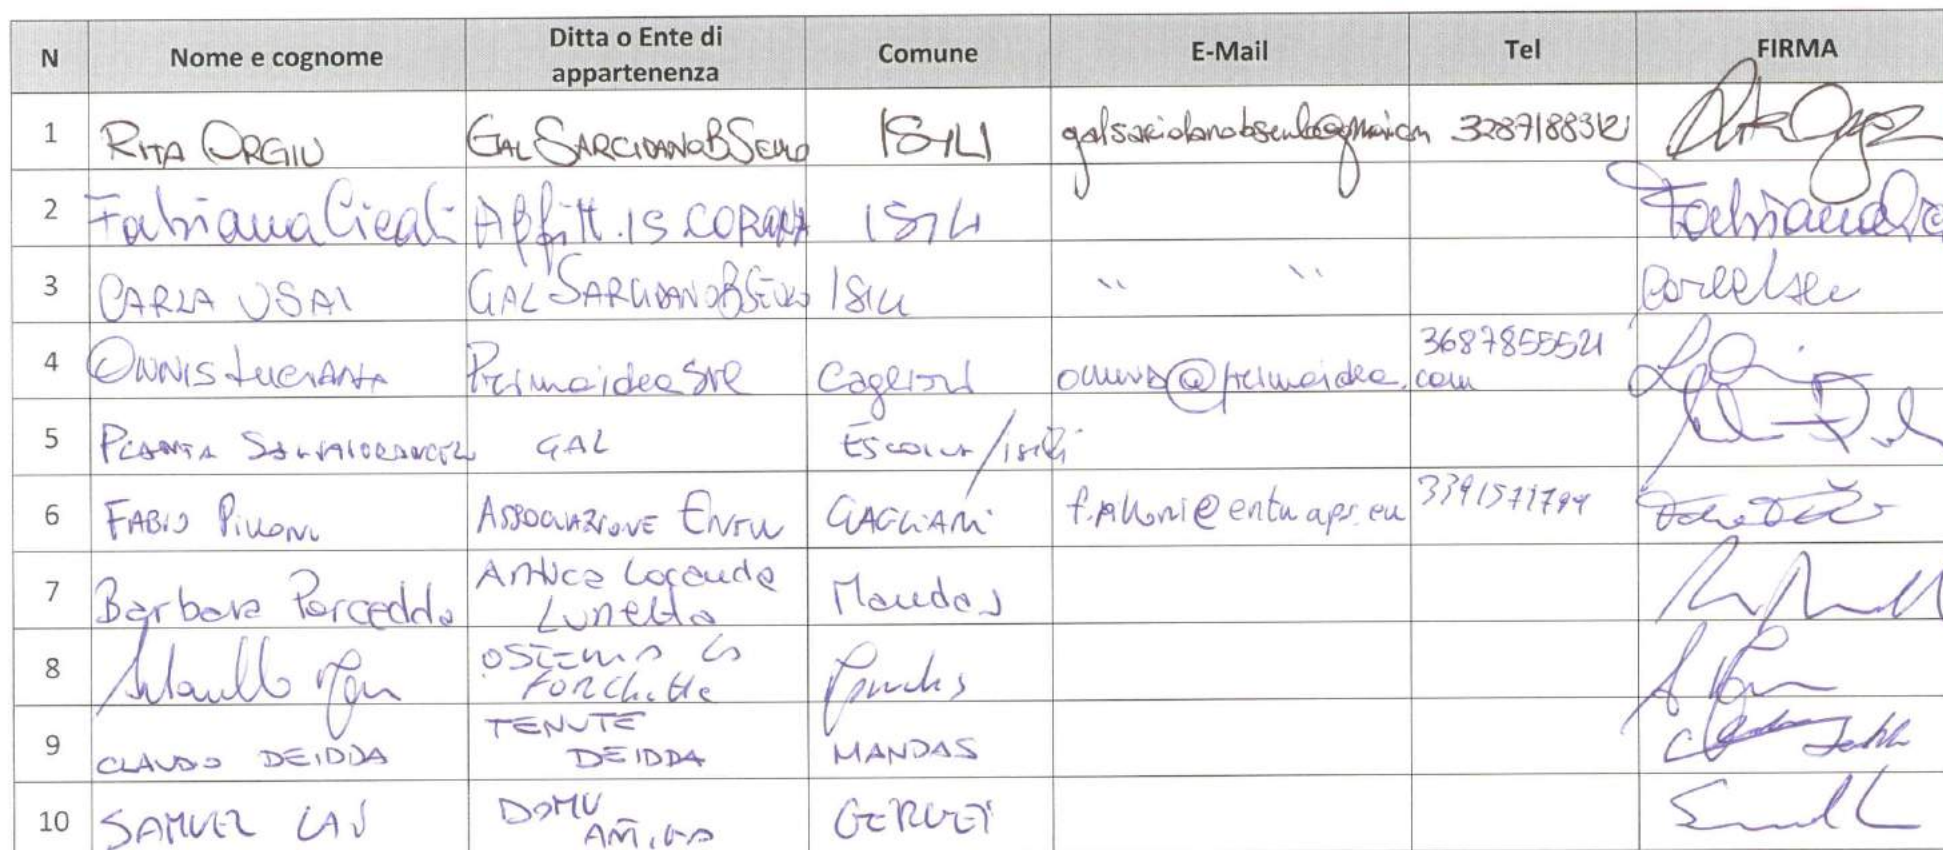 N Nome e cognome Ditta o Ente di appartenenza Comune E-Mail Tel FIRMA
1 RITA ORGIU GAL SARCIDANO BSEULO ISILI 3287188312
2 Fabiana Affitt. IS CORONA ISILI Fabiana
3 CARLA USAI GAL SARCIDANO BSEULO ISILI " "
4 ONNIS LUCIANA Primaidea srl Cagliari onnis@primaidea.com 3687855521
5 PIANTA GAL ESCOLCA/isili
6 FABIO PILLONI ASSOCIAZIONE ENTU CAGLIARI f.pilloni@entuaps.eu
7 Barbara Porceddu Antica Locanda Lunetta Mandas
8 OSTERIA LA FORCHETTA
9 CLAUDIO DEIDDA TENUTE DEIDDA MANDAS
10 SAMUEL LAI DOMU ANTIGA GERGEI